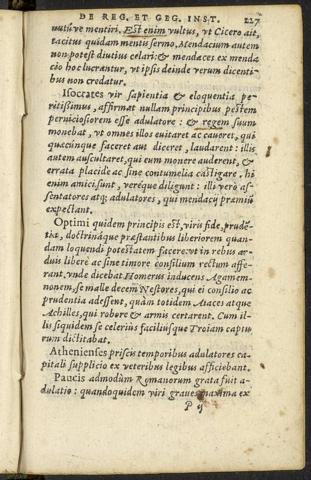 DE REG. ET GEG. INST. 227
uutũ ve mentiri. Est enim vultus, vt Cicero ait,
tacitus quidam mentis sermo. Mendacium autem
non potest diutius celari: & mendaces ex menda
cio hoc lucrantur, vt ipsis deinde verum dicenti-
bus non credatur.
Isocrates vir sapientia & eloquentia pe-
ritissimus, affirmat nullam principibus pestem
perniciosiorem esse adulatore: & regem suum
monebat, vt omnes illos euitaret ac caueret, qui
quæcũnque faceret aut diceret, laudarent: illis
autem auscultaret, qui eum monere auderent, &
errata placide ac sine contumelia castigare. hi
enim amici sunt, verèque diligunt: illi verò as-
sentatores atq; adulatores, qui mendacy præmiũ
expectant.
Optimi quidem principis est, viris fide, prudẽ-
tia, doctrináque præstantibus liberiorem quan-
dam loquendi potestatem facere: vt in rebus ar-
duis liberè ac sine timore consilium rectum affe-
rant. vnde dicebat Homerus inducens Agamem-
nonem, se malle decem Nestores, qui ei consilio ac
prudentia adessent, quàm totidem Aiaces atque
Achilles, qui robore & armis certarent. Cum il-
lis siquidem se celerius faciliusque Troiam captu
rum dictitabat.
Athenienses priscis temporibus adulatores ca-
pitali supplicio ex veteribus legibus afficiebant.
Paucis admodùm Romanorum grata fuit a-
dulatio: quandoquidem viri graues maxima ex
P ij